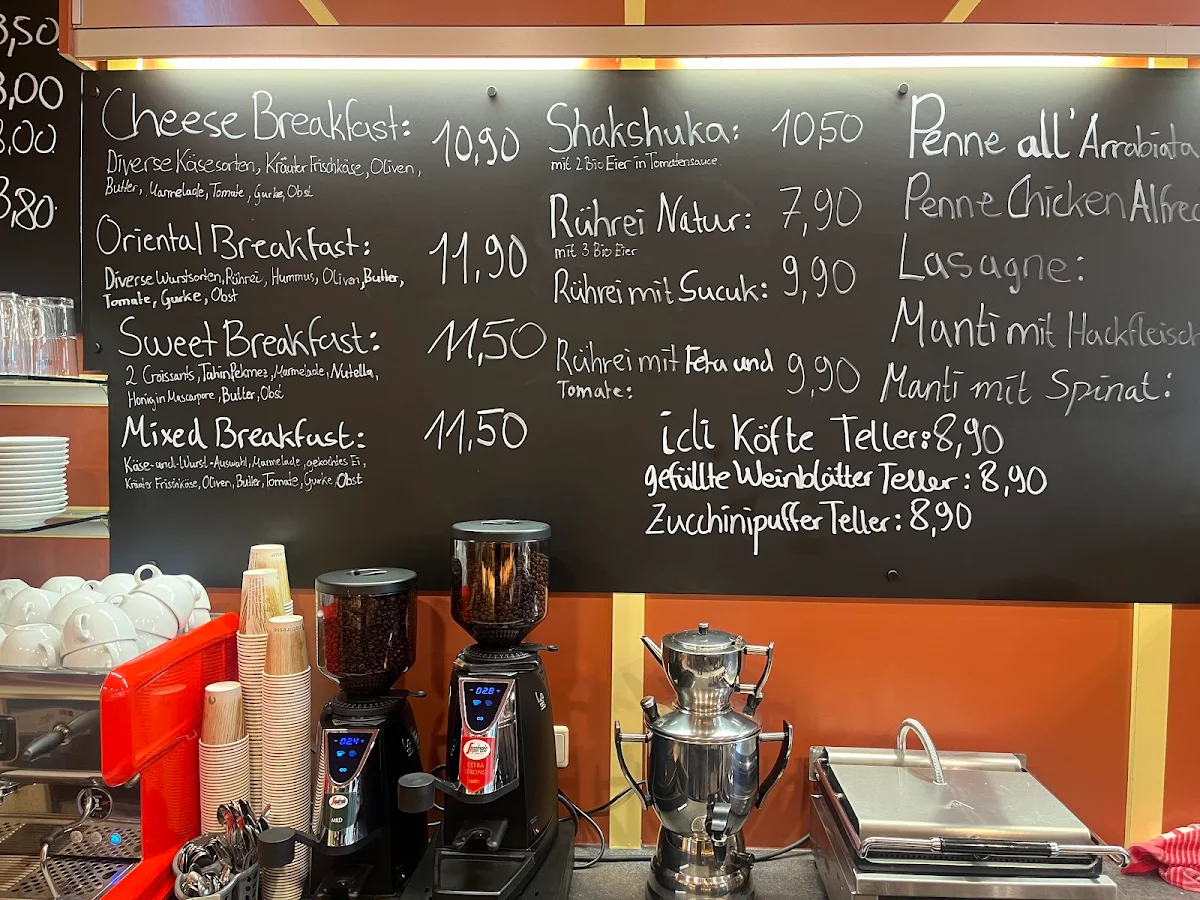 3,50
3,00
3,00
3,80
Cheese Breakfast: 10,90
Diverse Käsesorten, Kräuter Frischkäse, Oliven,
Butter, Marmelade, Tomate, Gurke, Obst
Oriental Breakfast: 11,90
Diverse Wurstsorten, Rührei, Hummus, Oliven, Butter,
Tomate, Gurke, Obst
Sweet Breakfast: 11,50
2 Croissants, Tahin Pekmez, Marmelade, Nutella,
Honig in Mascarpone, Butter, Obst
Mixed Breakfast: 11,50
Käse-und-Wurst-Auswahl, Marmelade, gekochtes Ei,
Kräuter Frischkäse, Oliven, Butter, Tomate, Gurke, Obst
Shakshuka: 10,50
mit 2 Bio Eier in Tomatensauce
Rührei Natur: 7,90
mit 3 Bio Eier
Rührei mit Sucuk: 9,90
Rührei mit Feta und 9,90
Tomate:
Penne all'Arrabiata
Penne Chicken Alfred
Lasagne:
Manti mit Hackfleisch
Manti mit Spinat:
icli Köfte Teller: 8,90
gefüllte Weinblätter Teller: 8,90
Zucchinipuffer Teller: 8,90
02.4
Segafredo
MILD
02.8
Segafredo
EXTRA
STRONG